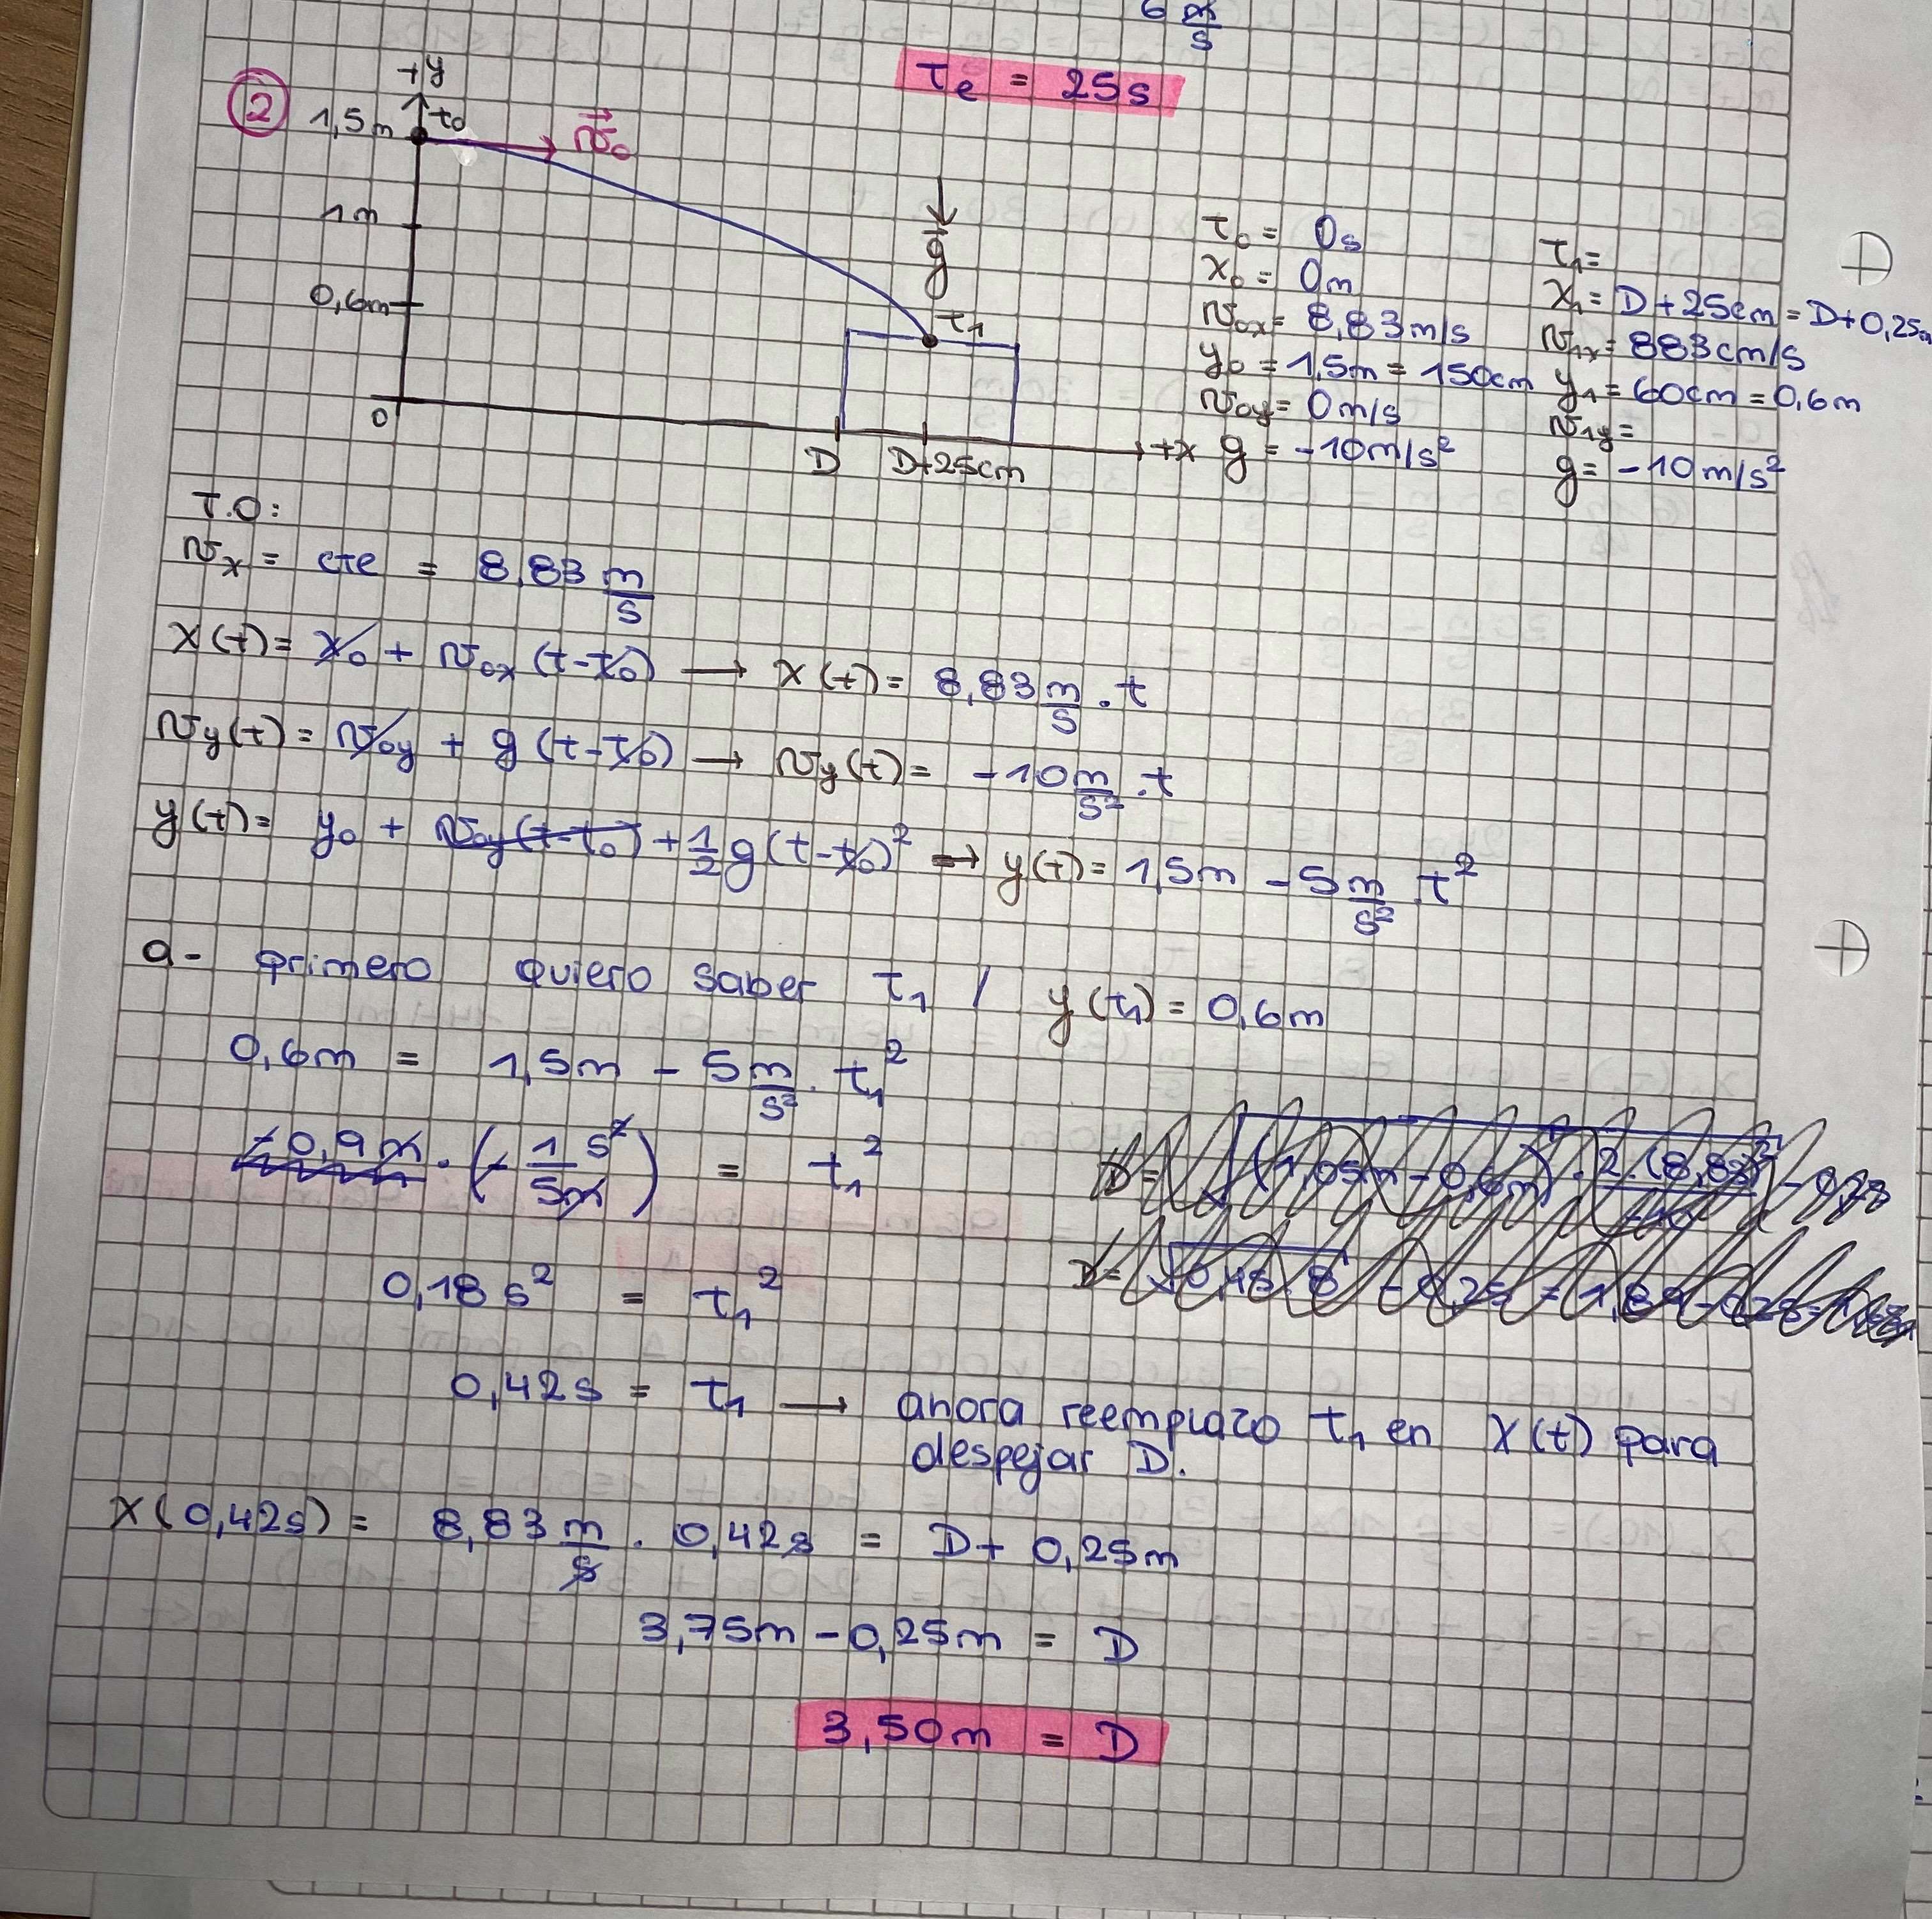 6 m/s
te = 25s
2
+y
1,5m
t0
v0
1m
0,6m
g
t1
0
D
D+25cm
+x
t0 = 0s
x0 = 0m
v0x = 8,83m/s
y0 = 1,5m = 150cm
v0y = 0m/s
g = -10m/s²
t1 =
x1 = D + 25cm = D + 0,25m
v1x = 883cm/s
y1 = 60cm = 0,6m
v1y =
g = -10m/s²
T.O:
vx = cte = 8,83 m/s
x(t) = x0 + v0x (t-t0) → x(t) = 8,83 m/s . t
vy(t) = v0y + g (t-t0) → vy(t) = -10 m/s² . t
y(t) = y0 + v0y(t-t0) + 1/2 g (t-t0)² → y(t) = 1,5m - 5 m/s² . t²
a- primero quiero saber t1 / y(t1) = 0,6m
0,6m = 1,5m - 5 m/s² . t1²
-0,9m . (- 1 s²/5m) = t1²
0,18 s² = t1²
0,42s = t1 → ahora reemplazo t1 en x(t) para
despejar D.
x(0,42s) = 8,83 m/s . 0,42s = D + 0,25m
3,75m - 0,25m = D
3,50m = D